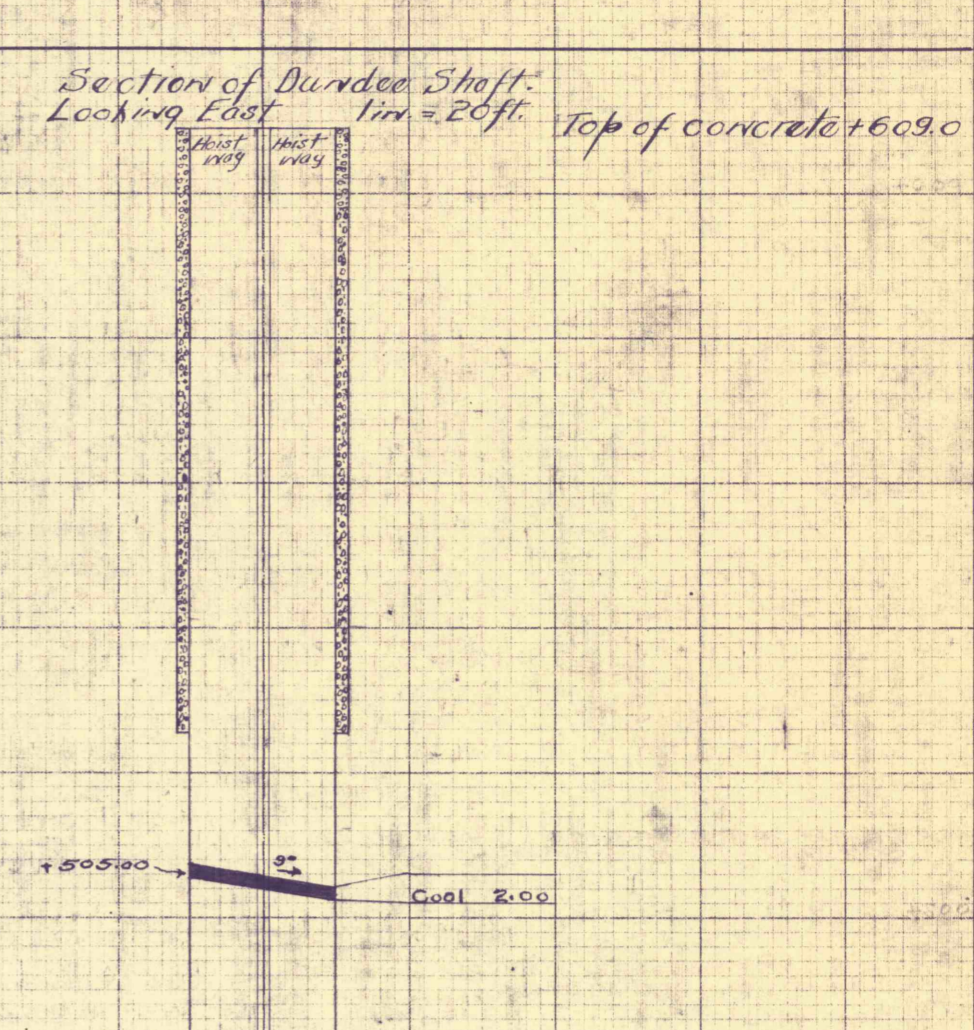 Section of Dundee Shaft.
Looking East 1in. = 20ft.
Top of concrete +609.0
Hoist way
Hoist way
+505.00
9°
Coal 2.00